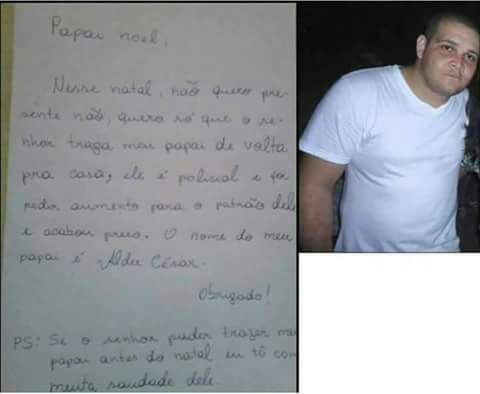 Papai noel,
Nesse natal, não quero pre-
sente não, quero só que o se-
nhor traga meu papai de volta
pra casa, ele é policial e foi
pedir aumento para o patrão dele
e acabou preso. O nome do meu
papai é Alder César.
Obrigado!
PS: Se o senhor puder trazer meu
papai antes do natal eu tô com
muita saudade dele.